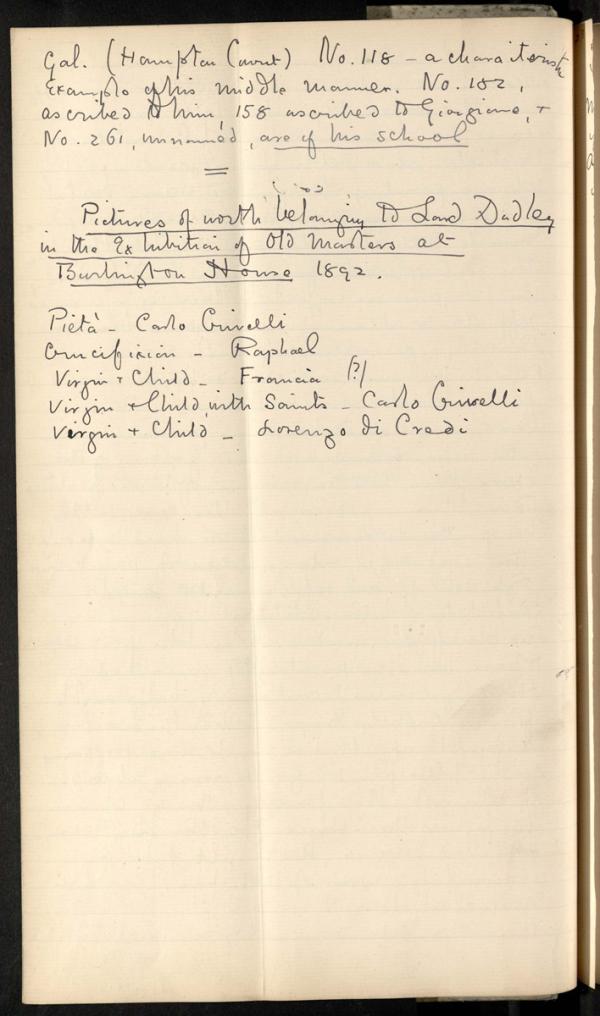 Gal. (Hampton Court) No. 118 - a characteristic
example of his middle manner. No. 182,
ascribed to him, 158 ascribed to Giorgione, +
No. 261, unnamed, are of his school
Pictures of worth belonging to Lord Dudley
in the Exhibition of Old Masters at
Burlington House 1892.
Pietà - Carlo Crivelli
Crucifixion - Raphael
Virgin + Child - Francia (?)
Virgin + Child, with Saints - Carlo Crivelli
Virgin + Child - Lorenzo di Credi